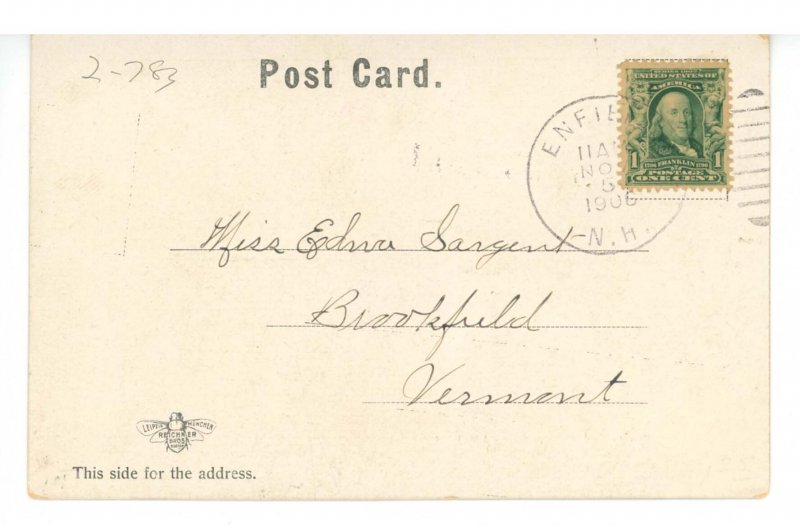 2-783
Post Card.
SERIES 1902
UNITED STATES OF
AMERICA
1 1706 FRANKLIN 1790 1
POSTAGE
ONE CENT
ENFIE
11AM
NO
5
1906
N.H.
Miss Edna Sargent
Brookfield
Vermont
LEIPZIG MÜNCHEN
REICHNER
BROS
This side for the address.